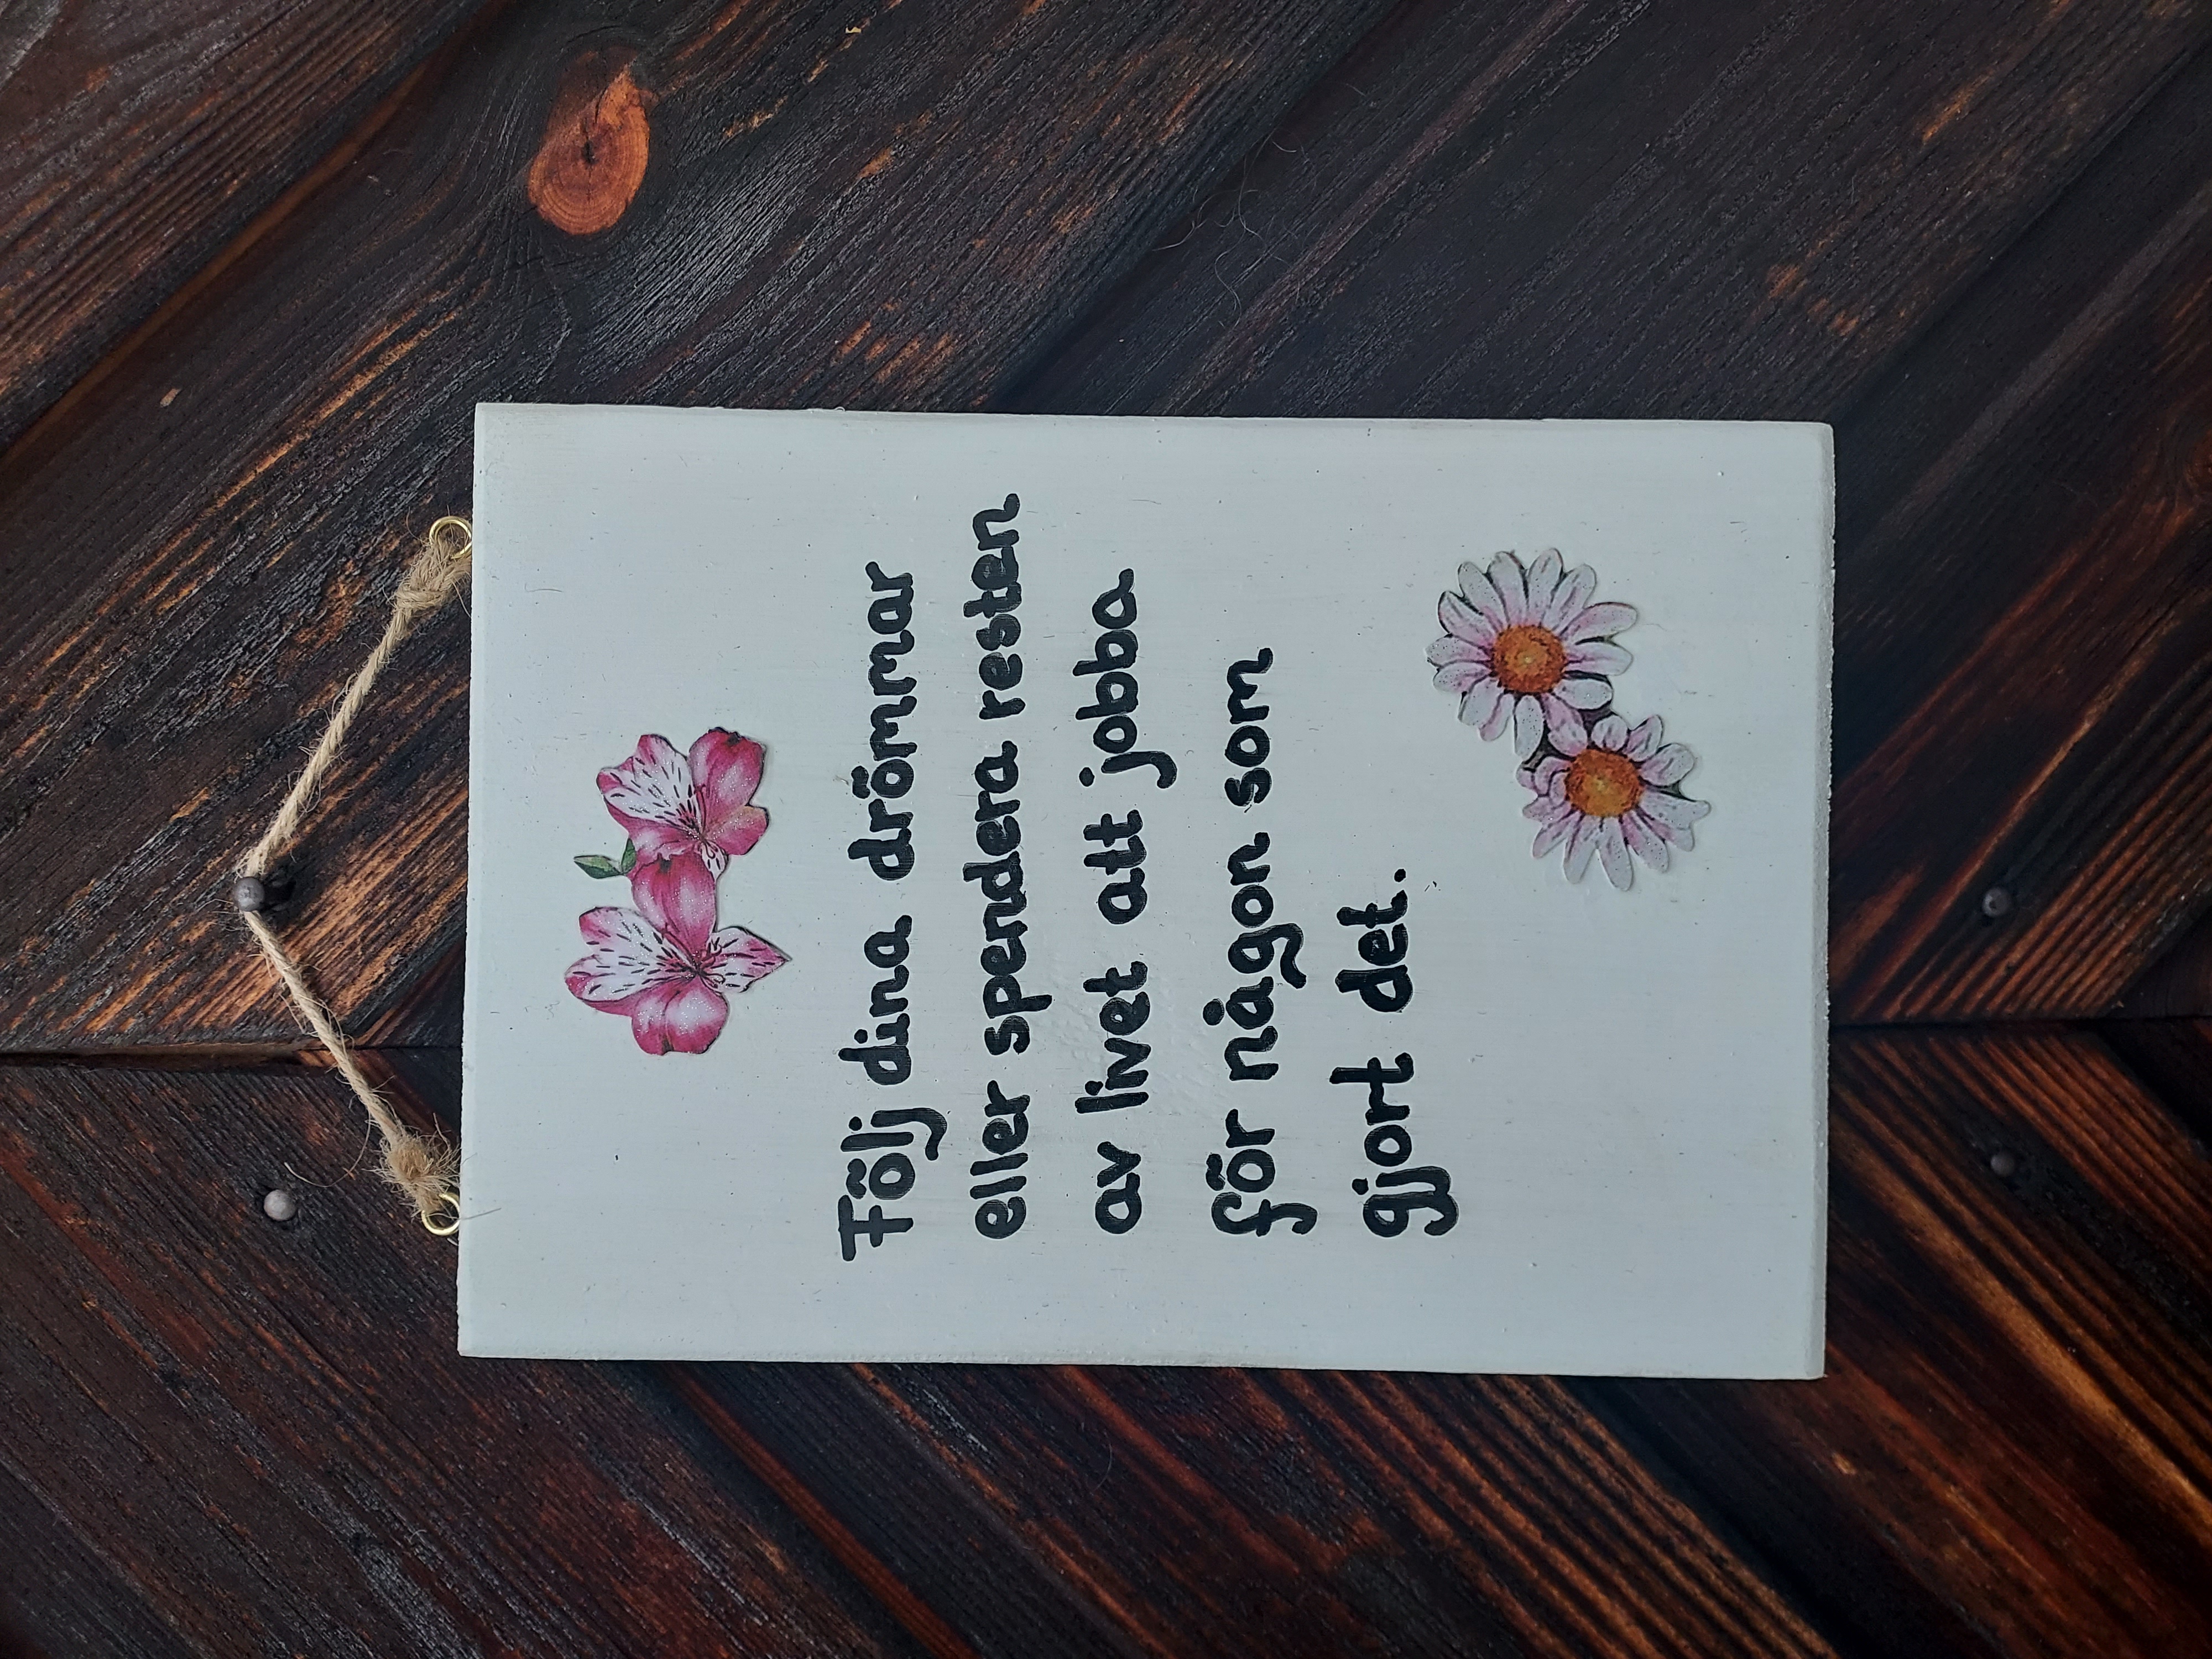 Följ dina drömmar
eller spendera resten
av livet att jobba
för någon som
gjort det.